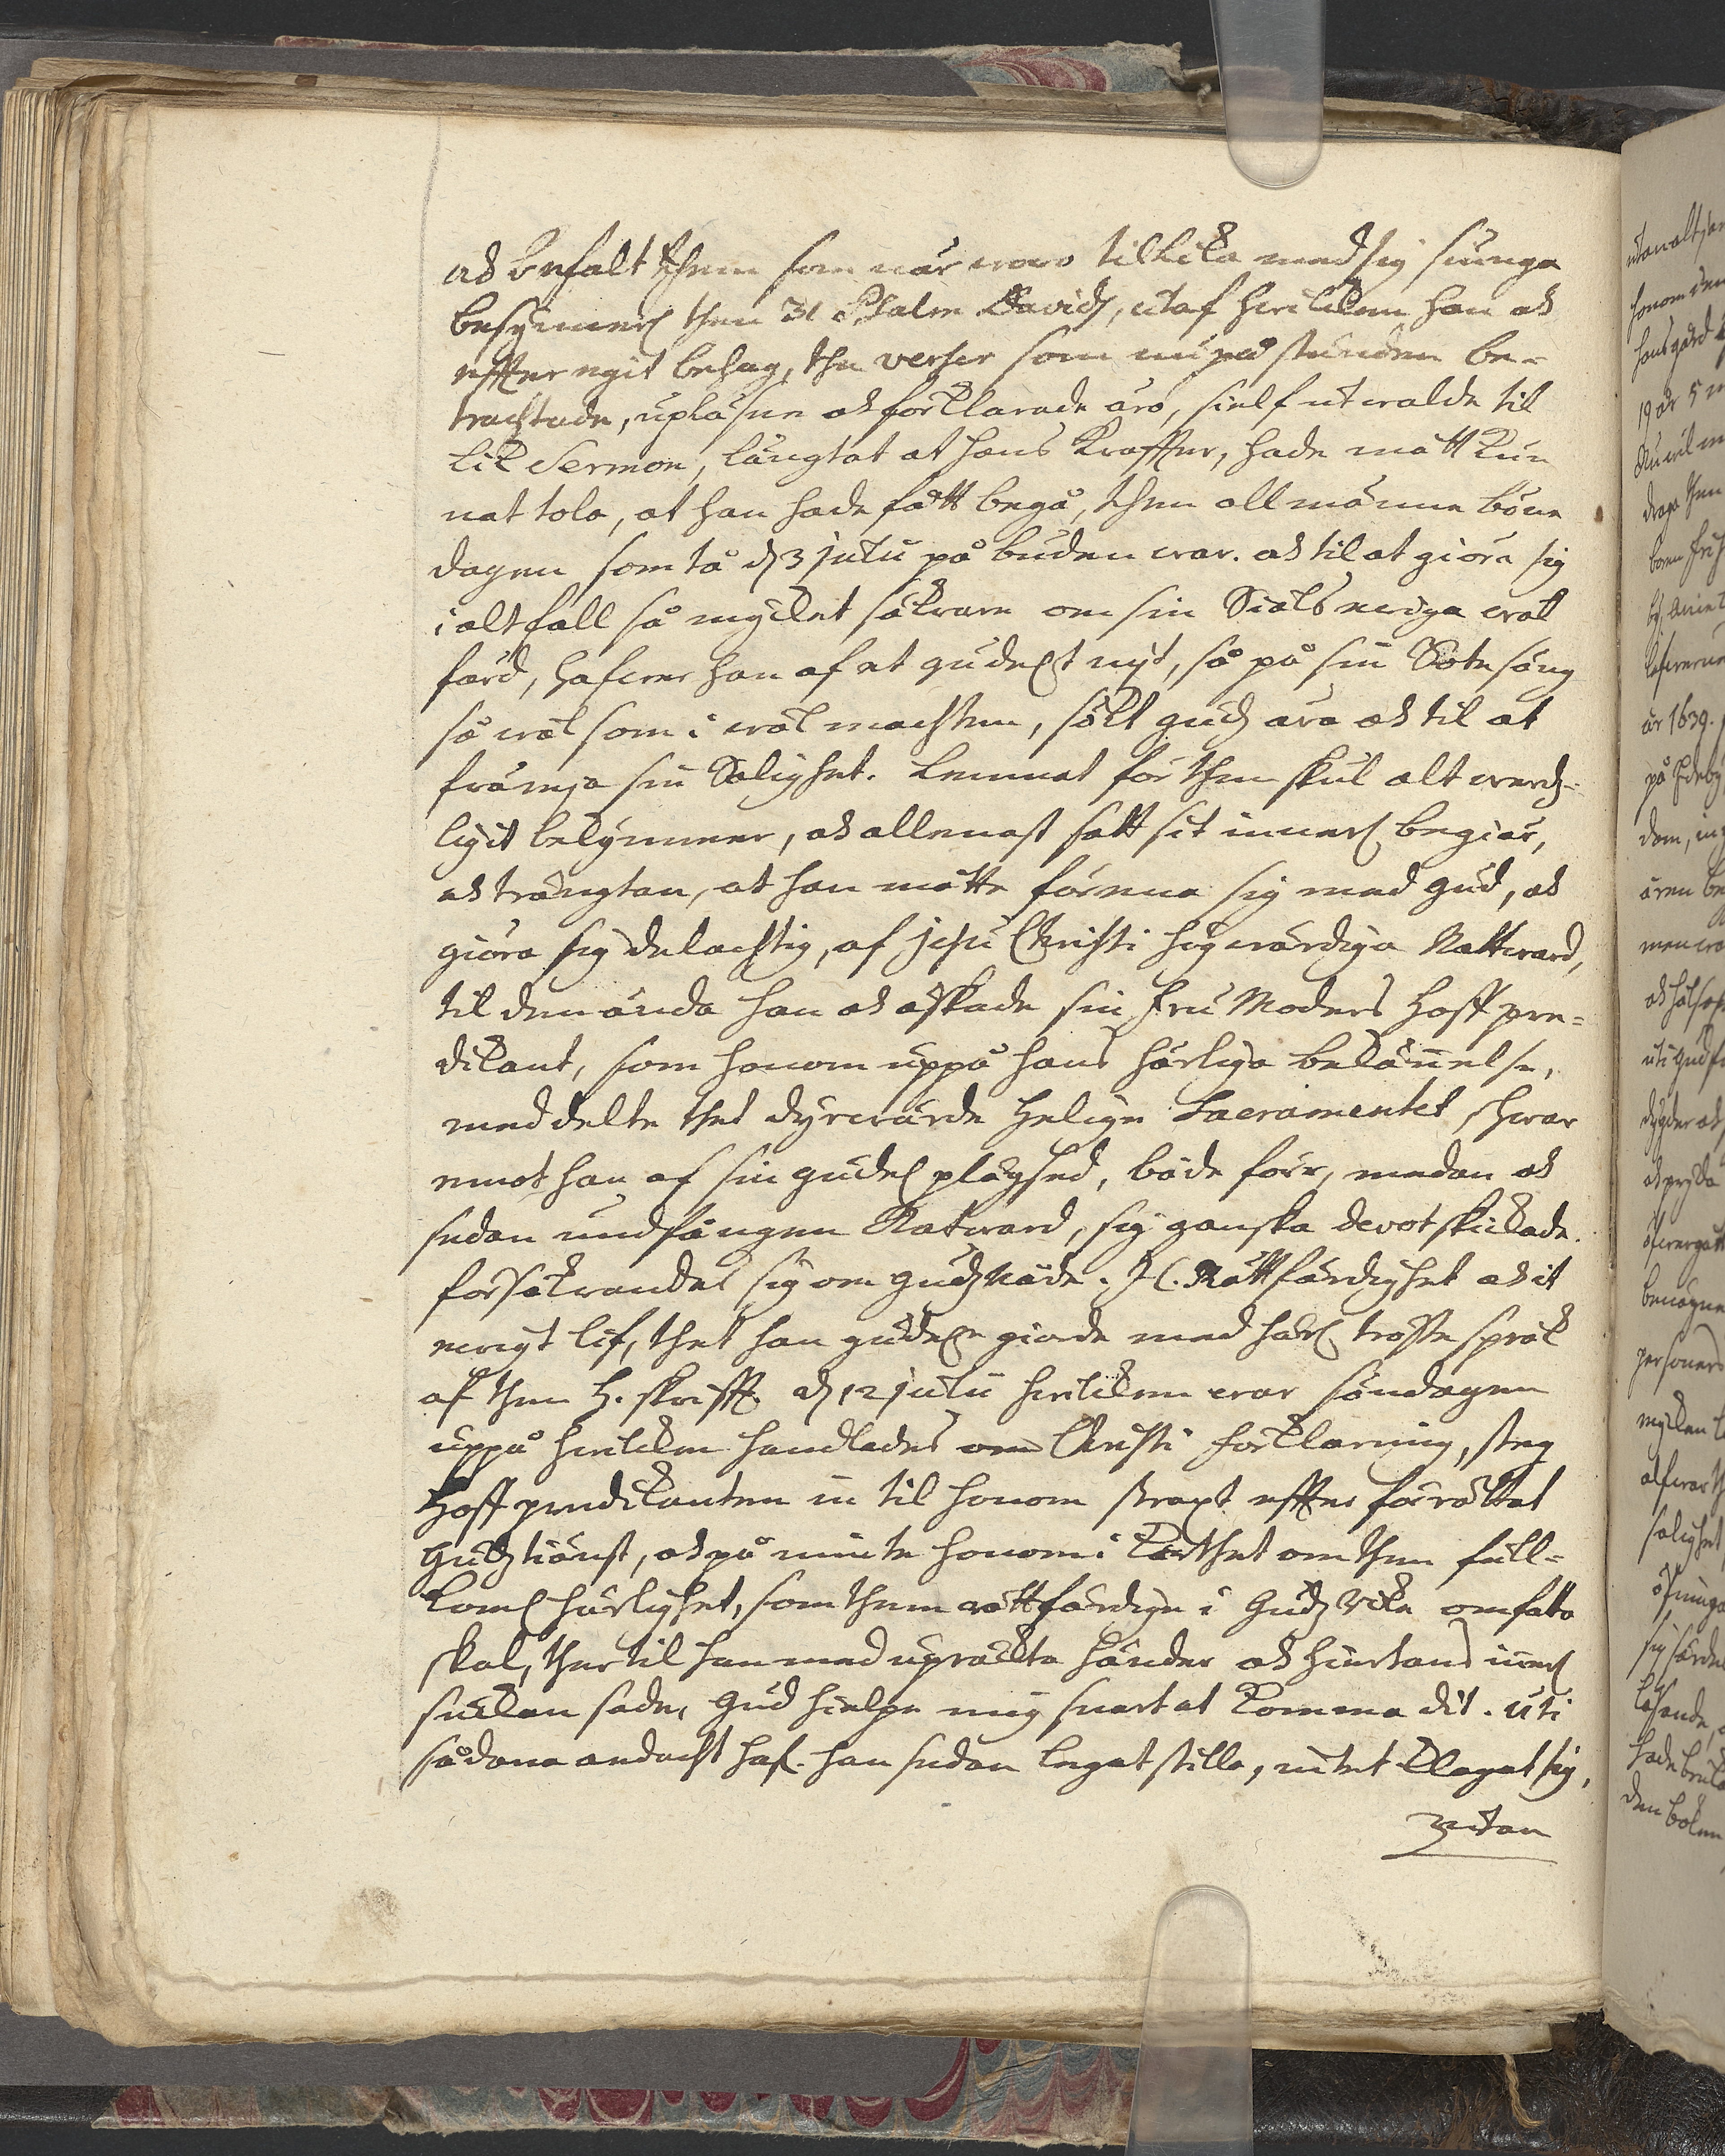 ok befalt them som när woro tillika med sig siunga
besynnerl then 31 Psalm Davidz, utaf hwilken han ok
effter egit behag, the verser som nu på stunden be-
trachtade, upläsne ok förklarade äro, sielf utwalde til
lik Sermon, längtat at hans Kraffter, hade mått kun
nat tola, at han hade fått begå, then allmänne böne
dagen som tå d 3 julii på buden war. ok til at giöra sig
i alt fall så mycket säkrare om sin Siäls ewiga wäl
färd, hafwer han af et gudelt nijt, så på sin Sotesäng
så wäl som i wälmachten, sökt gudz ära ok til at
främja sin Salighet. Lemnat för then skul alt werdz-
ligit bekymmer, ok allenast satt sit innerl begiär,
ok trängtan, at han måtte förena sig med gud, ok
giöra sig delachtig, af jesu Christi högwärdiga Nattward,
til den ända han ok äskade sin fru Moders Hoff pre=
dikant, som honom uppå hans härliga bekännelse,
meddelte thet dyrwärde helige Sacramentet, hwar
emot han af sin gudel plägsed, både förr, medan ok
sedan undfången Natward, sig ganska devot skickade.
försäkrandes sig om gudz Nåde. J C. Rättfärdighet ok it
ewigt lif, thet han gudeln giorde med härl tröste språk
af then H. skrifft. d 12 julii hwilken war söndagen
uppå hwilken handlades om Christi förklaring, steg
Hoff predikanten in til honom straxt effter förrättat
Gudz tiänst, ok på minte honom i korthet om then full=
koml härlighet, som them rättfärdige i Gudz Rike omfatta
skal, ther til han med upräckta händer ok hiertans innerl
suckan sade, Gud hielpe mig snart at komma dit. Uti
sådana andacht haf. han sedan legat stilla, intet klagat sig,
utan